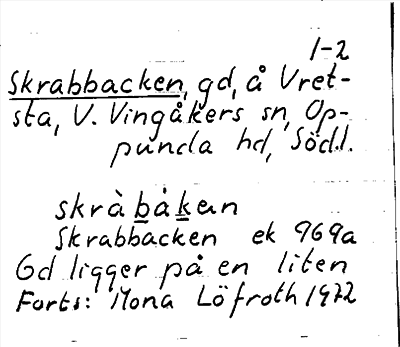 1-2
Skrabbacken, gd, å Vret-
sta, V. Vingåkers sn, Op-
punda hd, Södl.
skràbàkan
Skrabbacken ek 969a
Gd ligger på en liten
Forts: Mona Löfroth 1972